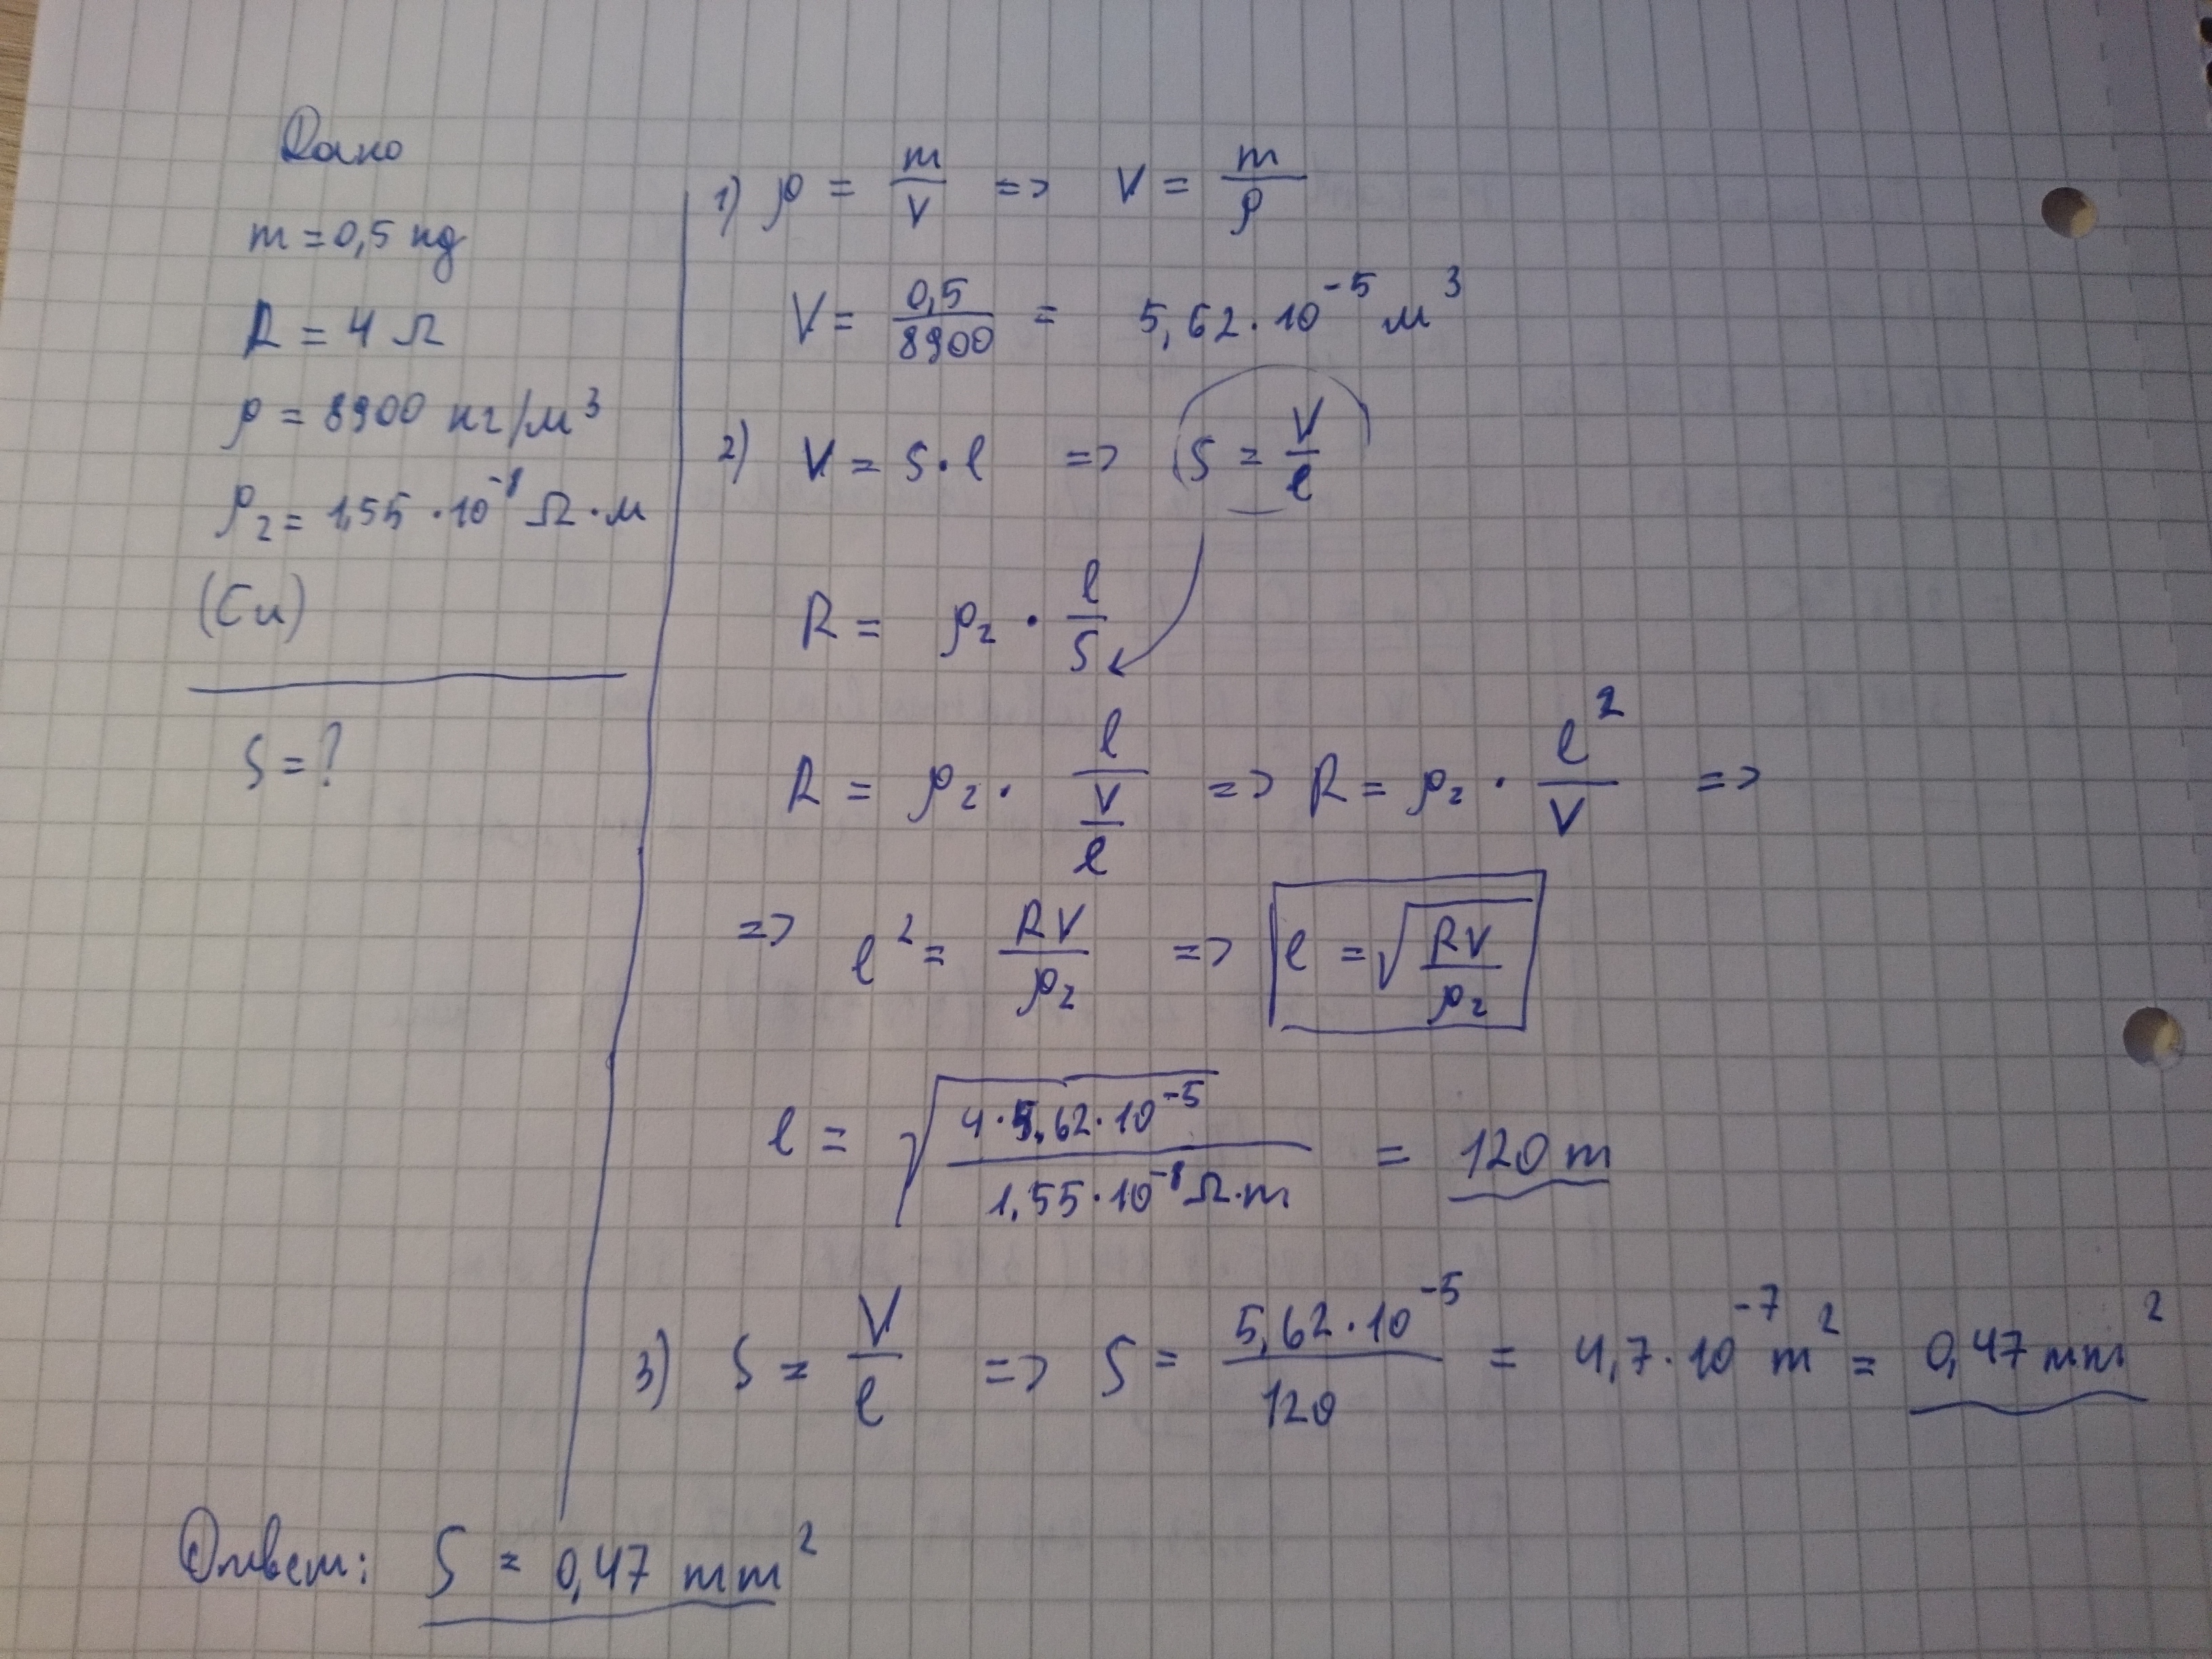 Дано
m = 0,5 кg
R = 4 Ω
ρ = 8900 кг/м³
ρ₂ = 1,55 · 10⁻⁸ Ω · м
(Cu)
S = ?
1) ρ = m/V => V = m/ρ
V = 0,5/8900 = 5,62 · 10⁻⁵ м³
2) V = S · l => S = V/l
R = ρ₂ · l/S
R = ρ₂ · l/(V/l) => R = ρ₂ · l²/V =>
=> l² = RV/ρ₂ => l = √(RV/ρ₂)
l = √(4 · 5,62 · 10⁻⁵/1,55 · 10⁻⁸ Ω · m) = 120 m
3) S = V/l => S = 5,62 · 10⁻⁵/120 = 4,7 · 10⁻⁷ m² = 0,47 mm²
Ответ: S = 0,47 mm²